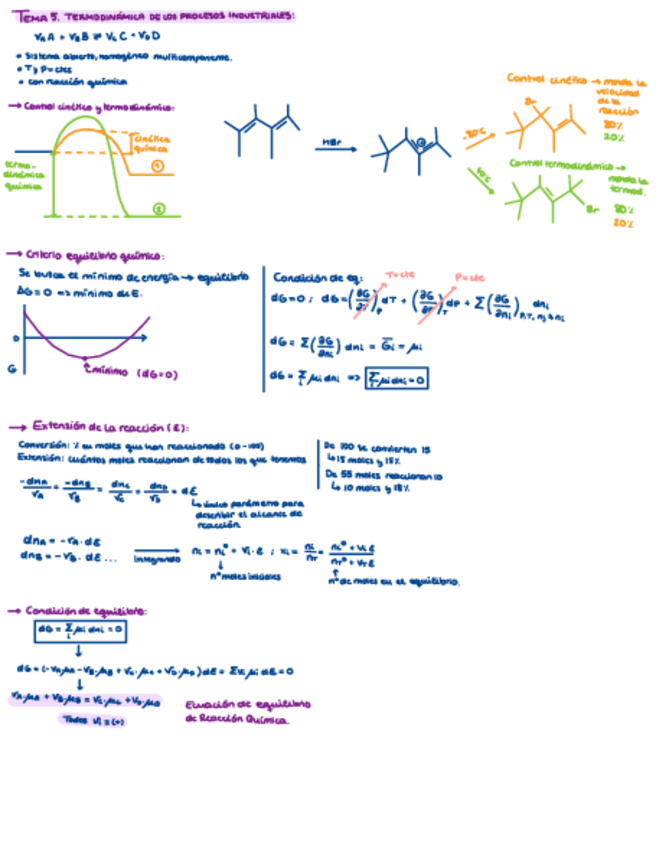 TEMA 5. TERMODINÁMICA DE LOS PROCESOS INDUSTRIALES:
νA A + νB B ⇌ νC C + νD D
• Sistema abierto, homogéneo multicomponente.
• T y P = ctes
• con reacción química
→ Control cinético y termodinámico:
cinética
química
termo-
dinámica
química
1
2
HBr
-80ºC
Br
Control cinético → manda la
velocidad
de la
reacción
80%
20%
Control termodinámico →
manda la
termod.
Br
80%
20%
→ Criterio equilibrio químico:
Se busca el mínimo de energía → equilibrio
ΔG = 0 => mínimo de E.
0
G
mínimo (dG=0)
Condición de eq:
T=cte
P=cte
dG=0 ; dG=(∂G/∂T)P dT + (∂G/∂P)T dP + Σ(∂G/∂ni)P,T,nj≠ni dni
dG = Σ(∂G/∂ni) dni = Gi = μi
dG = Σi μi dni => Σi μi dni = 0
→ Extensión de la reacción (ε):
Conversión: % en moles que han reaccionado (0-100)
Extensión: cuántos moles reaccionan de todos los que tenemos
De 100 se convierten 15
↳ 15 moles y 15%
De 55 moles reaccionan 10
↳ 10 moles y 18%
-dnA/νA = -dnB/νB = dnC/νC = dnD/νD = dε
↳ único parámetro para
describir el alcance de
reacción.
dnA = -νA · dε
dnB = -νB · dε ...
integrando
ni = ni° + νi · ε ; xi = ni/nT = (ni° + νi ε)/(nT° + νT ε)
nº moles iniciales
nº de moles en el equilibrio.
→ Condición de equilibrio:
dG = Σi μi dni = 0
dG = (-νA μA - νB μB + νC · μC + νD · μD) dε = Σνi μi dε = 0
νA · μA + νB · μB = νC · μC + νD · μD
Todos νi = (+)
Ecuación de equilibrio
de Reacción Química.